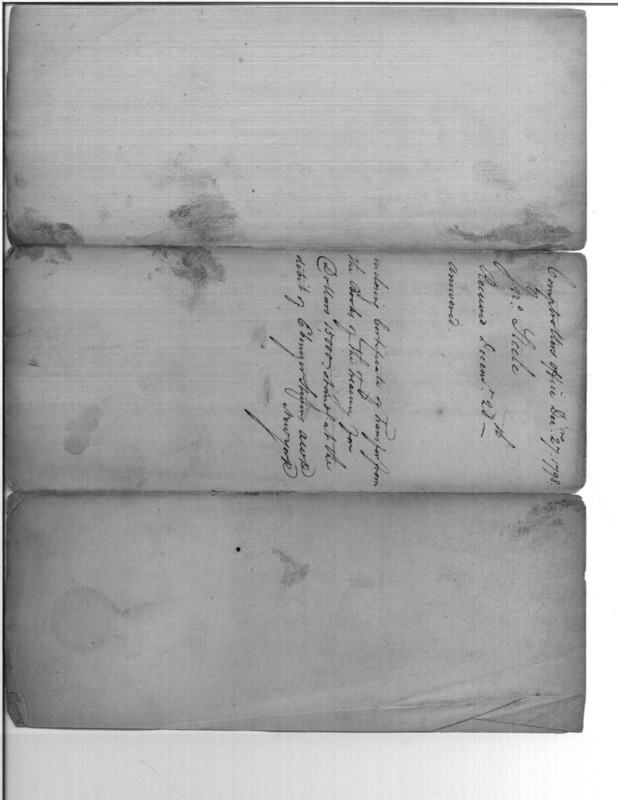 Comptrollers office Dec. 27. 1798.
Jno. Steele
Received Decemr 28th
Answered.
inclosing Certificate of Transfer from
the Books of the Treasury for
Dollars stock at the
debit of Ebenezer Stevens
New york